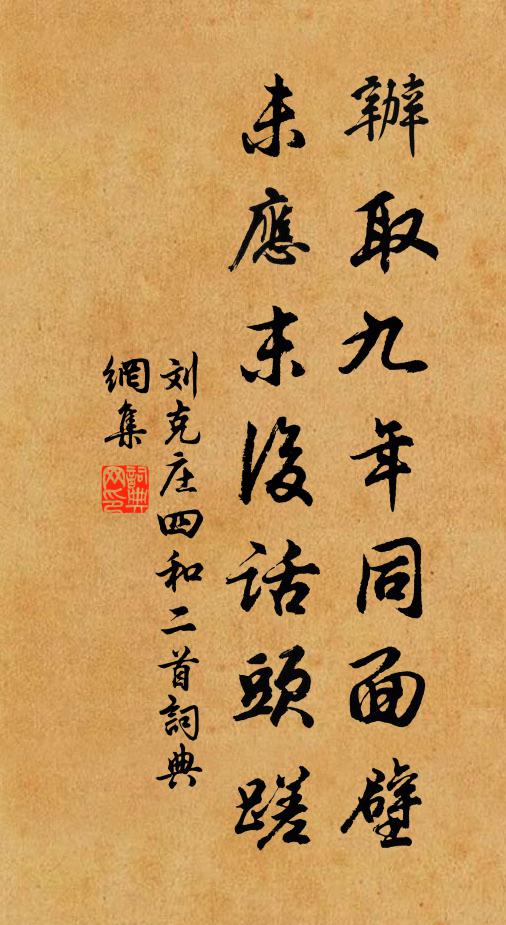 辦取九年同面壁
未應末後話頭蹉
刘克庄四和二首詞典
網集
詞典网印